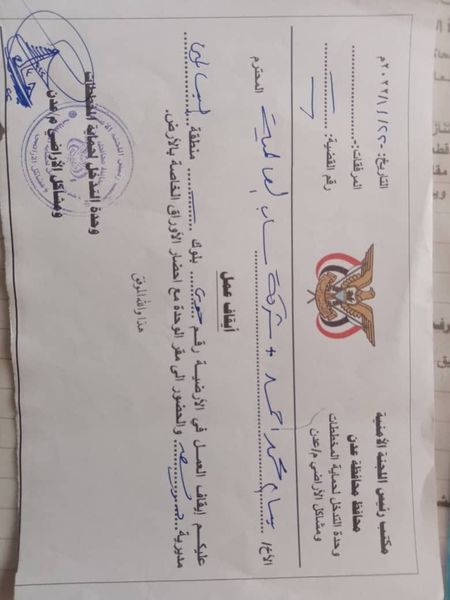 مكتب رئيس اللجنة الأمنية
محافظ محافظة عدن
وحدة التدخل لحماية المخططات
ومشاكل الأراضي م/عدن
التاريخ: ٢٠٢٢/١٠/٢٢م
المرفقات:
رقم القضية:
الأخ/ بسام محمد احمد + شركة المحترم
أيقاف عمل
عليكم إيقاف العمل في الأرضية رقم بلوك منطقة
مديرية والحضور الى مقر الوحدة مع احضار الأوراق الخاصة بالأرض.
هذا والله الموفق
وحدة التدخل لحماية المخططات
ومشاكل الأراضي م/عدن